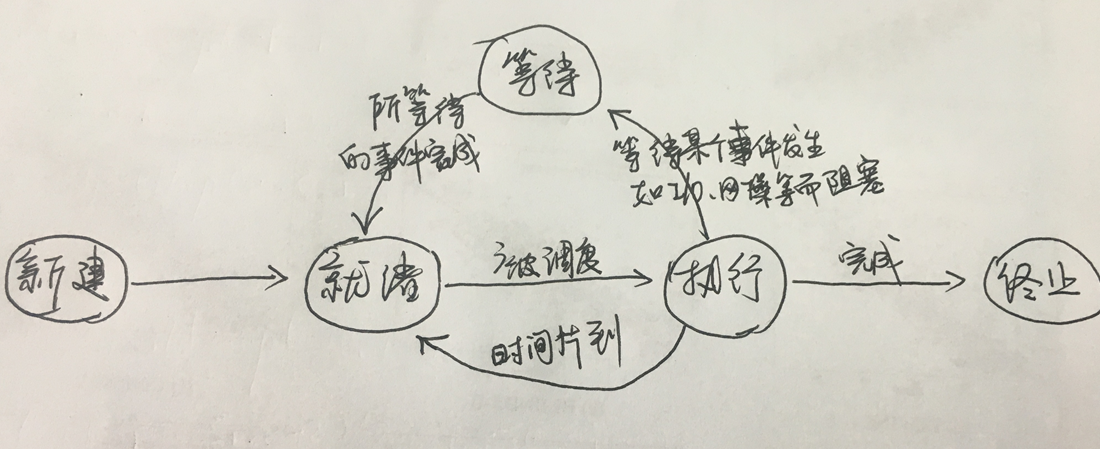 等待
所等待
的事件完成
等待某个事件发生
如I/O、网操等而阻塞
新建
就绪
被调度
执行
完成
终止
时间片到